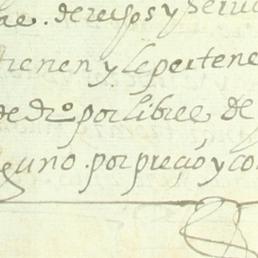 ae. de reisos y servi
tienen y le pertene
de dro por libre de
guno. por preçio y co